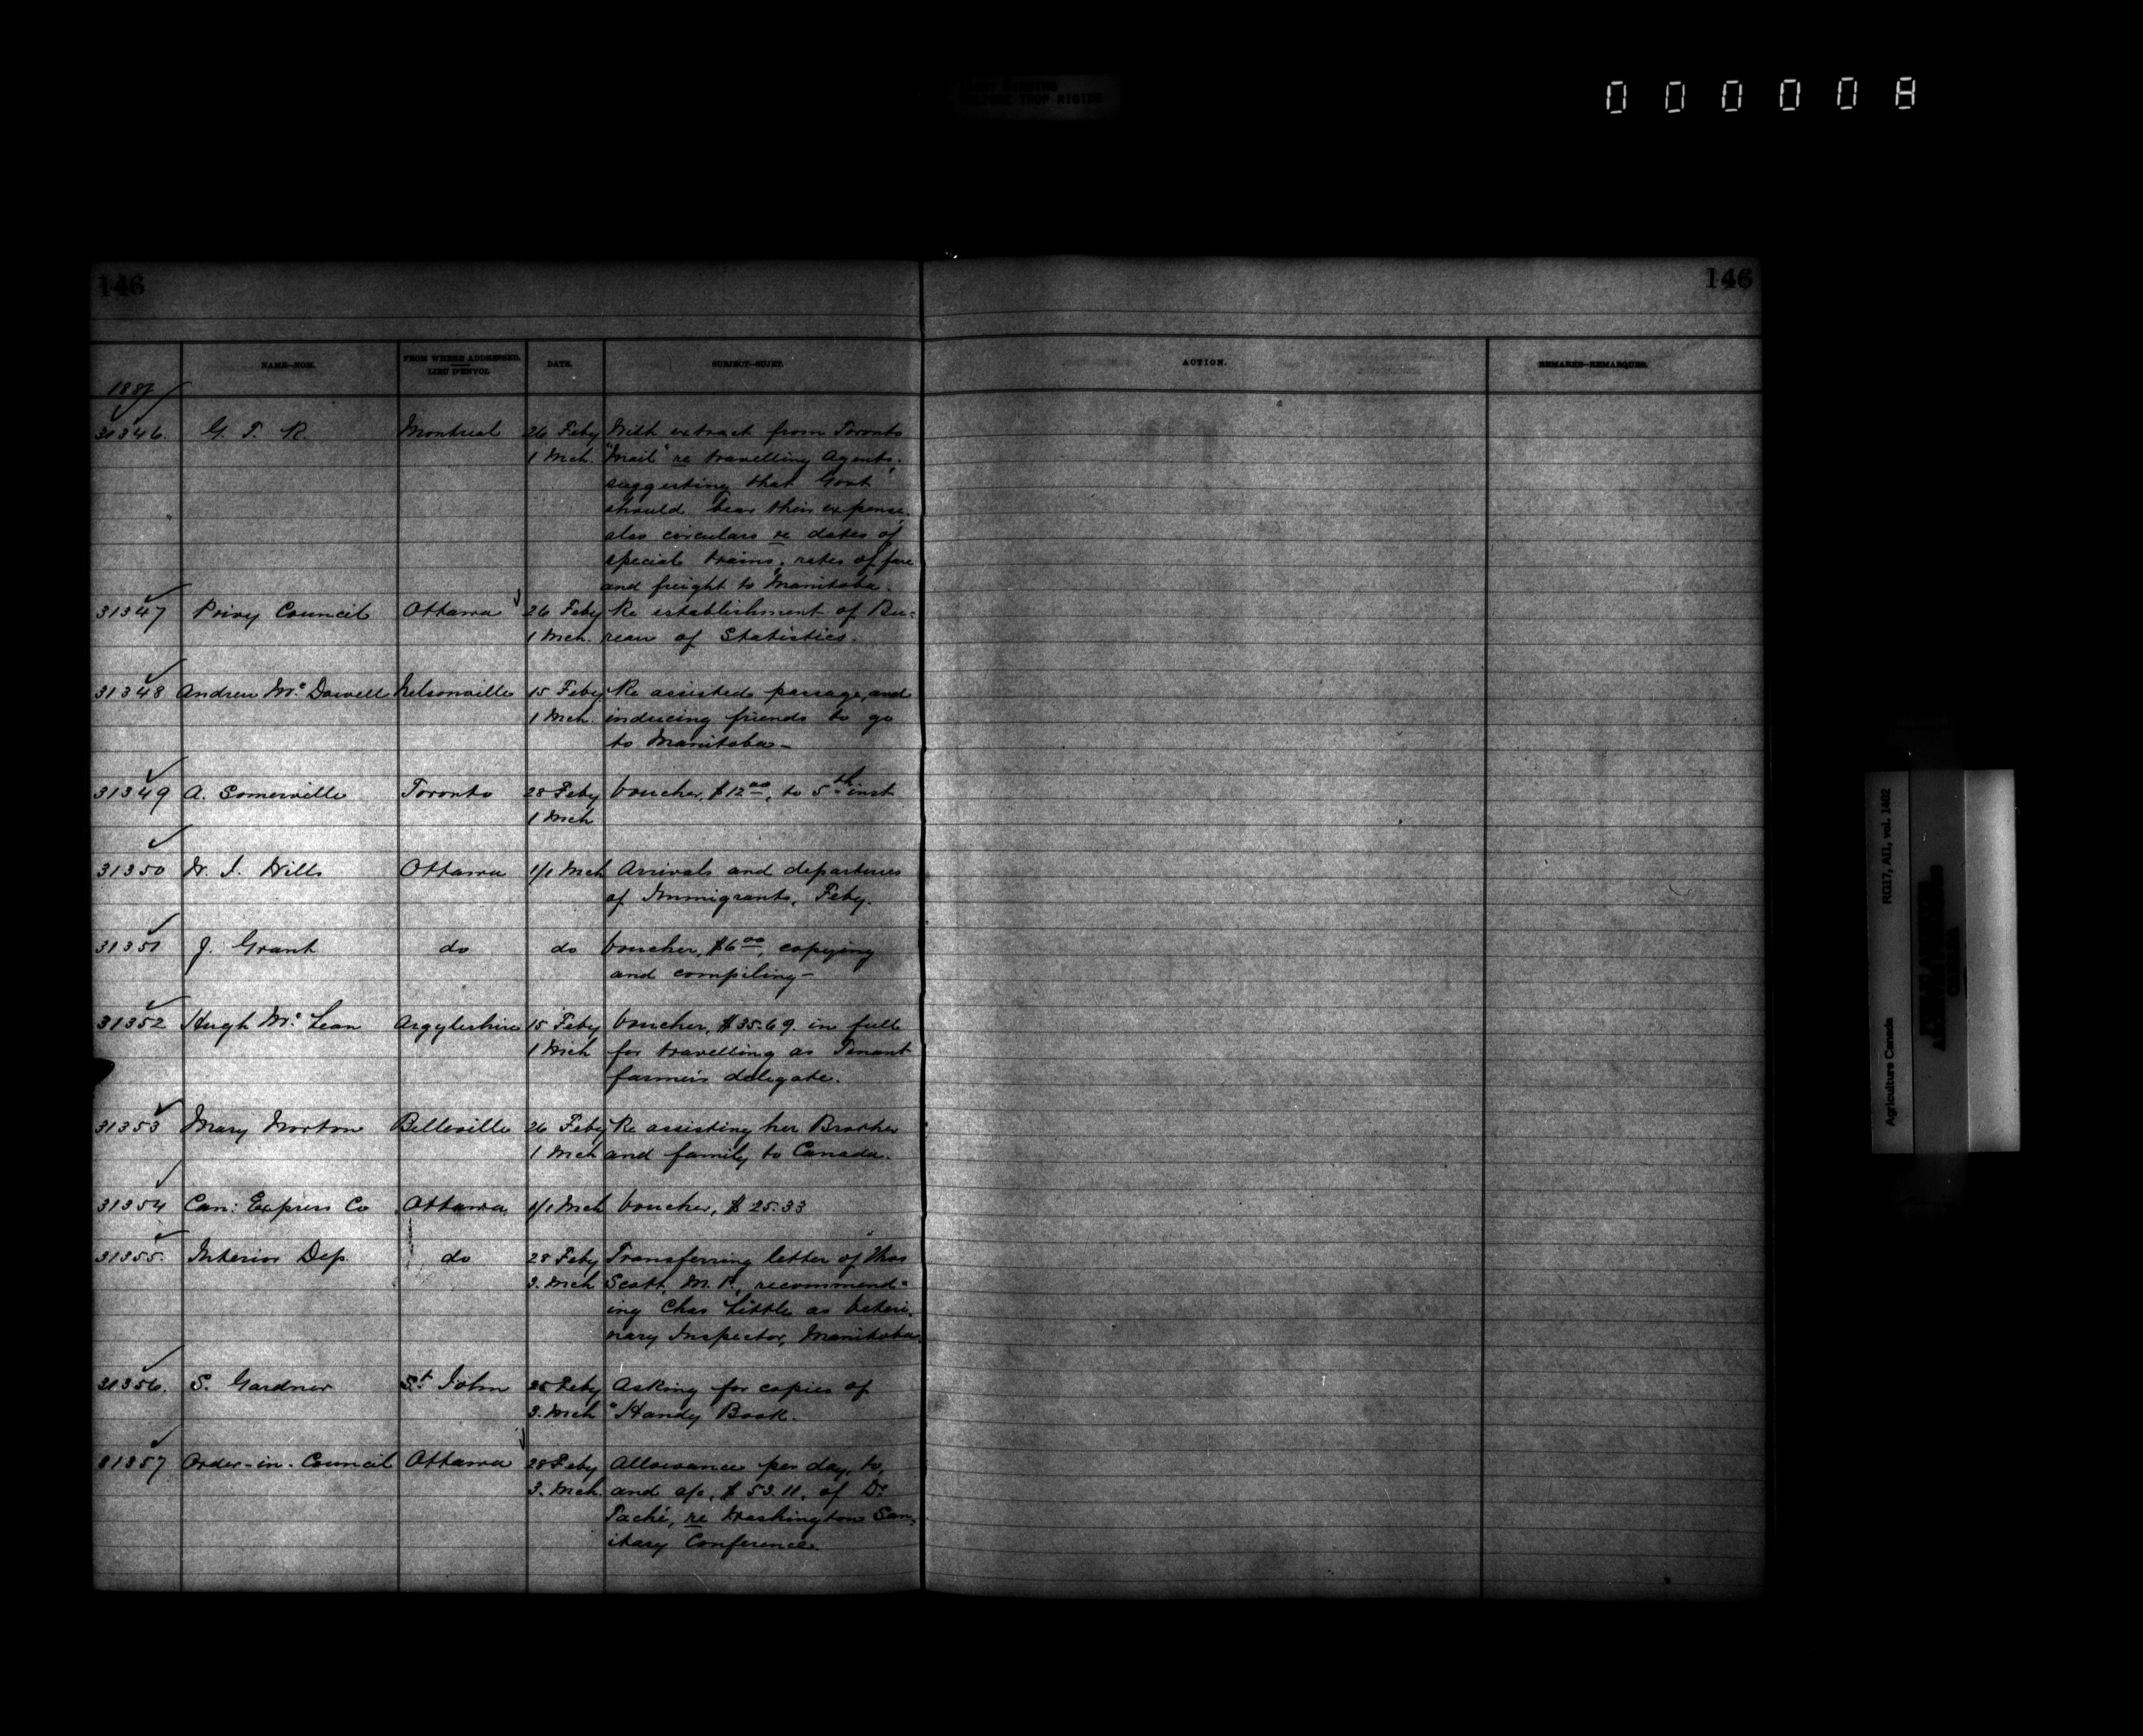 000008
146
146
NAME—NOM.
FROM WHERE ADDRESSED.
LIEU D'ENVOI.
DATE.
SUBJECT—SUJET.
ACTION.
REMARKS—REMARQUES.
31346. G. T. R. Montreal 26 Feby With extract from Toronto
1 Mch. "Mail" re travelling Agents,
suggesting that Govt
should bear their expense,
also circulars re dates of
special trains, rates of fare
and freight to Manitoba.
31347 Privy Council Ottawa 26 Feby Re establishment of Bu=
1 Mch. reau of Statistics.
31348 Andrew McDowell Nelsonville 15 Feby Re assisted passage, and
1 Mch. inducing friends to go
to Manitoba—
31349 A. Somerville Toronto 28 Feby Voucher, $12.00, to 5th inst
1 Mch
31350 W. J. Wills Ottawa 1/1 Mch Arrivals and departures
of Immigrants, Feby.
31351 J. Grant do do Voucher, $6.00, copying
and compiling—
31352 Hugh McLean Argyleshire 15 Feby Voucher, $35.69. in full
1 Mch for travelling as Tenant
farmers delegate.
31353 Mary Norton Belleville 26 Feby Re assisting her Brother
1 Mch and family to Canada.
31354 Can: Express Co Ottawa 1/1 Mch Voucher, $25.33
31355. Interior Dep. do 28 Feby Transferring letter of Thos
3. Mch Scott, M.P., recommend=
ing Chas Little as Veteri-
nary Inspector, Manitoba.
31356. S. Gardner St. John 25 Feby Asking for copies of
3. Mch "Handy Book.
31357 Order-in-Council Ottawa 28 Feby Allowance per day, to,
3. Mch. and a/c, $53.11, of Dr
Taché, re Washington San-
itary Conference.
Agriculture Canada RG17, AI1, vol. 1402